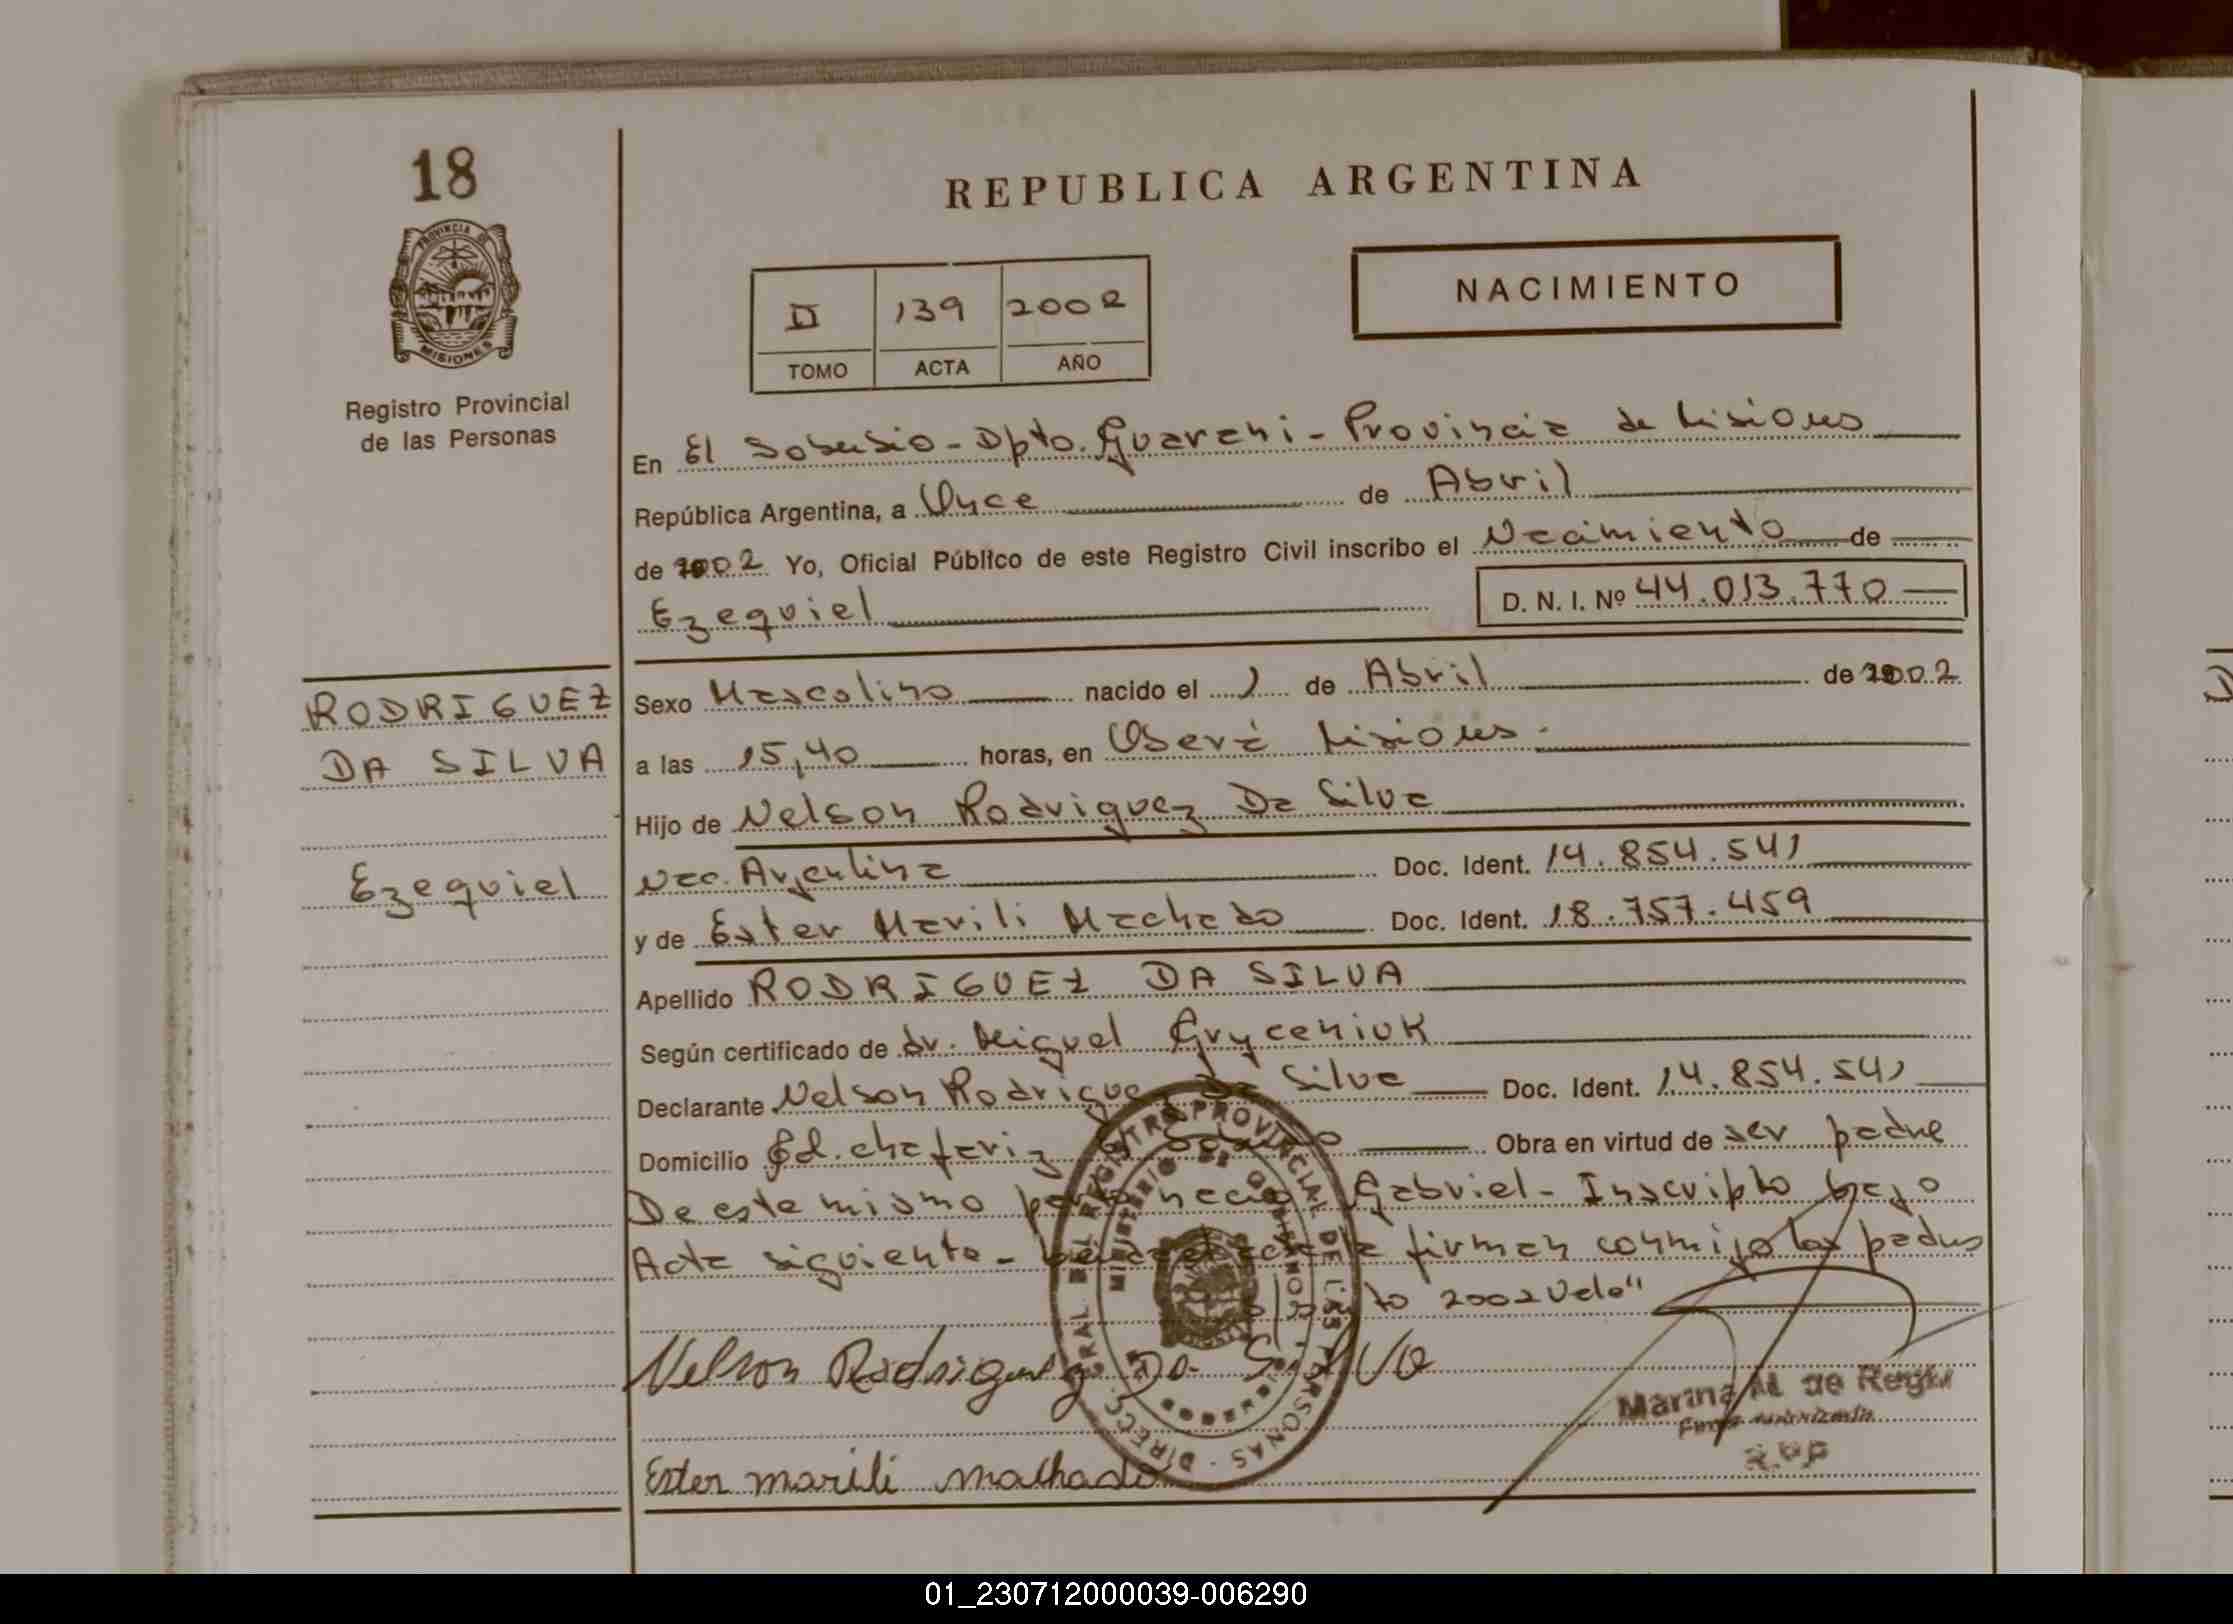 18
PROVINCIA DE
MISIONES
Registro Provincial
de las Personas
RODRIGUEZ
DA SILVA
Ezequiel
REPUBLICA ARGENTINA
II 139 2002
TOMO ACTA AÑO
NACIMIENTO
En El Soberbio - Dpto. Guarani - Provincia de Misiones
República Argentina, a Once de Abril
de 2002 Yo, Oficial Público de este Registro Civil inscribo el Nacimiento de
Ezequiel D. N. I. Nº 44.013.770
Sexo Masculino nacido el 1 de Abril de 2002
a las 15,40 horas, en Oberá Misiones.
Hijo de Nelson Rodriguez Da Silva
Nac. Argentina Doc. Ident. 14.854.541
y de Ester Marili Machado Doc. Ident. 18.757.459
Apellido RODRIGUEZ DA SILVA
Según certificado de dr. Miguel Gryceniuk
Declarante Nelson Rodriguez Da Silva Doc. Ident. 14.854.541
Domicilio chafariz Obra en virtud de ser padre
De este mismo parto nacio Gabriel - Inscripto bajo
Acta siguiente - firman conmigo los padres
2002 Vale"
Nelson Rodriguez Da Silva
Marina de
Ester marili machado
REGISTRO PROVINCIAL DE LAS PERSONAS - DIRECC. GRAL. DEL
MINISTERIO DE GOBIERNO
01_230712000039-006290